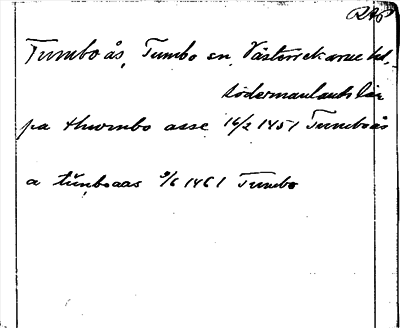 RAp
Tumbo ås, Tumbo sn, Västerrekarne hd,
Södermanlands län
pa thwmbo asse 16/2 1451 Tumboås
a tũnboaas 9/6 1461 Tumbo